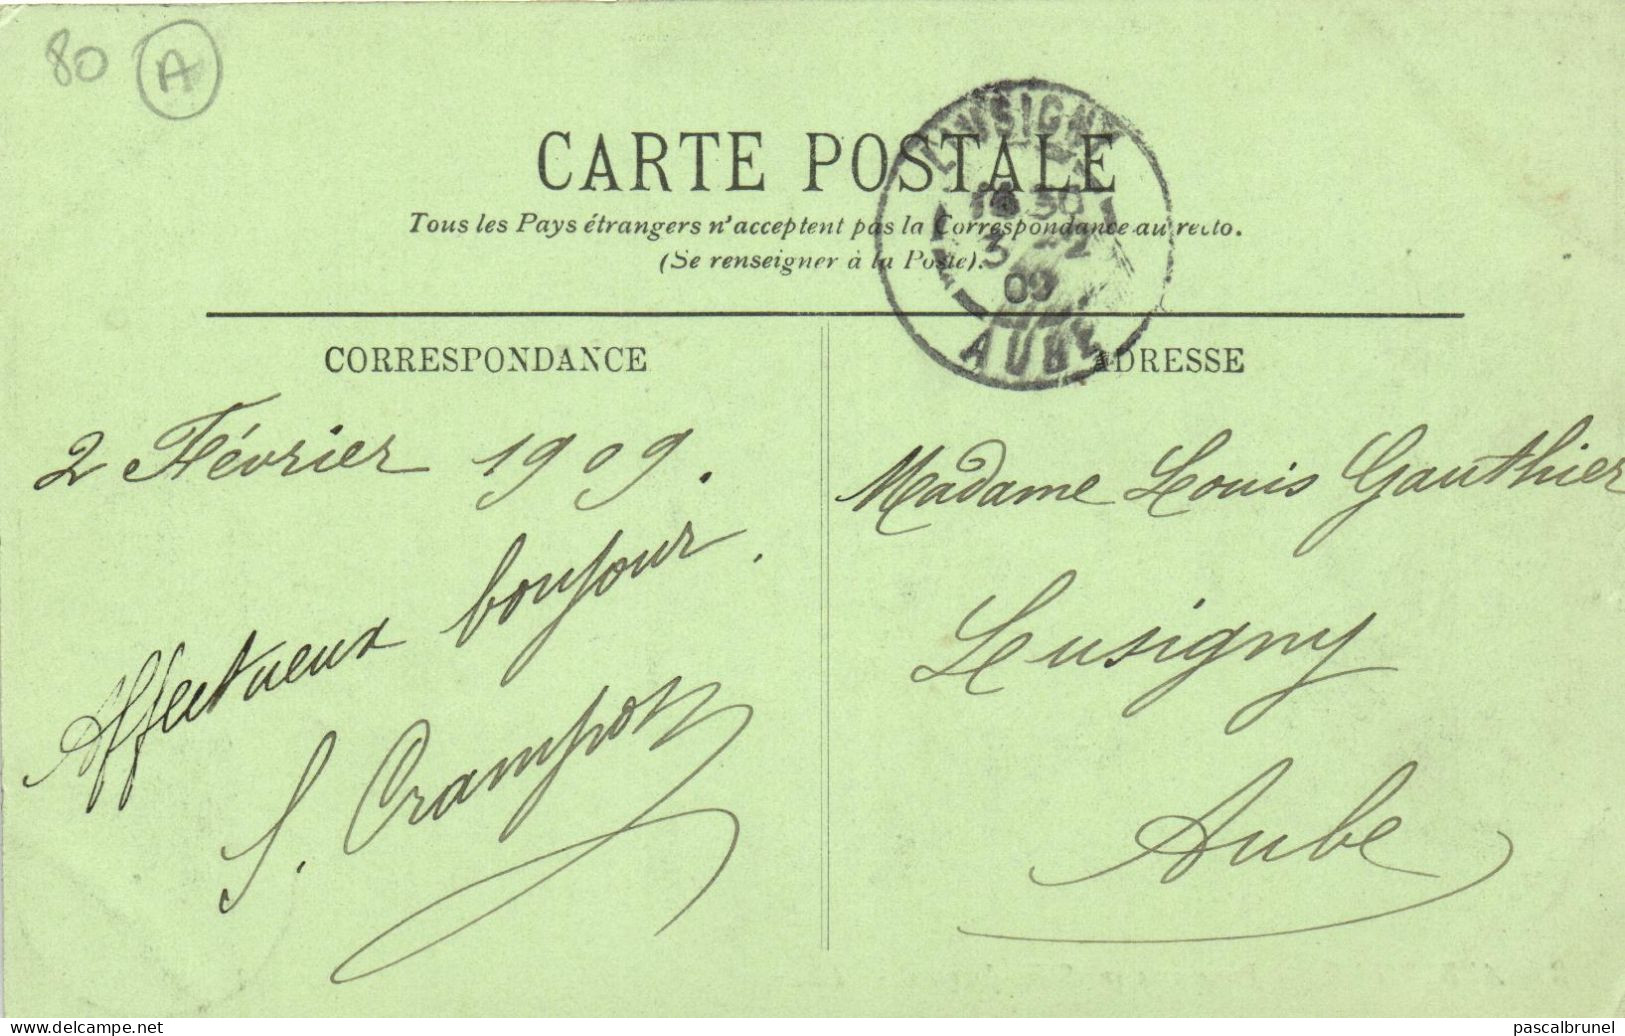 80 A
CARTE POSTALE
Tous les Pays étrangers n'acceptent pas la Correspondance au recto.
(Se renseigner à la Poste).
LUSIGNY
30
3 - 2
09
AUBE
CORRESPONDANCE
2 Février 1909.
Affectueux bonjour.
S. Crampon
ADRESSE
Madame Louis Gauthier
Lusigny
Aube
www.delcampe.net
pascalbrunel